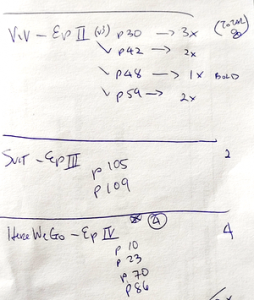 VIV - Ep II (v3) p30 → 3x (TOTAL 8)
✓ p42 → 2x
✓ p48 → 1x BOLD
✓ p59 → 2x
SUIT - Ep III 2
p 105
p 109
④
Here We Go - Ep IV 4
p 10
p 23
p 70
p 86